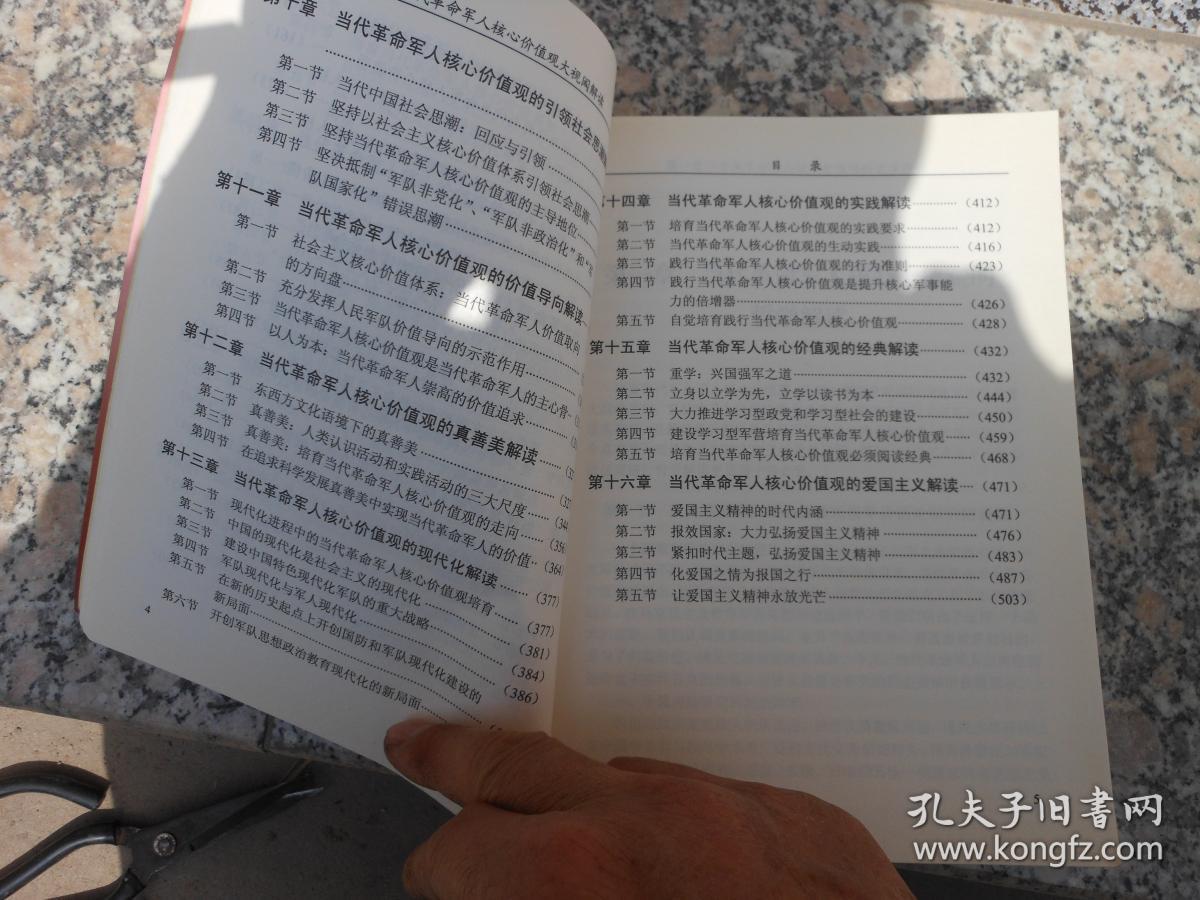 代革命军人核心价值观大视阈解读
第十章 当代革命军人核心价值观的引领社会思潮
第一节 当代中国社会思潮：回应与引领
第二节 坚持以社会主义核心价值体系引领社会思潮
第三节 坚持当代革命军人核心价值观的主导地位
第四节 坚决抵制“军队非党化”、“军队非政治化”和“军
队国家化”错误思潮
第十一章 当代革命军人核心价值观的价值导向解读
第一节 社会主义核心价值体系：当代革命军人价值取向
的方向盘
第二节 充分发挥人民军队价值导向的示范作用
第三节 当代革命军人核心价值观是当代革命军人的主心骨
第四节 以人为本：当代革命军人崇高的价值追求
第十二章 当代革命军人核心价值观的真善美解读
第一节 东西方文化语境下的真善美
第二节 真善美：人类认识活动和实践活动的三大尺度
第三节 真善美：培育当代革命军人核心价值观的走向 (344
第四节 在追求科学发展真善美中实现当代革命军人的价值 (364)
第十三章 当代革命军人核心价值观的现代化解读 (377)
第一节 现代化进程中的当代革命军人核心价值观培育 (377)
第二节 中国的现代化是社会主义的现代化 (381)
第三节 建设中国特色现代化军队的重大战略 (384)
第四节 军队现代化与军人现代化 (386)
第五节 在新的历史起点上开创国防和军队现代化建设的
新局面
第六节 开创军队思想政治教育现代化的新局面
4
目 录
十四章 当代革命军人核心价值观的实践解读 (412)
第一节 培育当代革命军人核心价值观的实践要求 (412)
第二节 当代革命军人核心价值观的生动实践 (416)
第三节 践行当代革命军人核心价值观的行为准则 (423)
第四节 践行当代革命军人核心价值观是提升核心军事能
力的倍增器 (426)
第五节 自觉培育践行当代革命军人核心价值观 (428)
第十五章 当代革命军人核心价值观的经典解读 (432)
第一节 重学：兴国强军之道 (432)
第二节 立身以立学为先，立学以读书为本 (444)
第三节 大力推进学习型政党和学习型社会的建设 (450)
第四节 建设学习型军营培育当代革命军人核心价值观 (459)
第五节 培育当代革命军人核心价值观必须阅读经典 (468)
第十六章 当代革命军人核心价值观的爱国主义解读 (471)
第一节 爱国主义精神的时代内涵 (471)
第二节 报效国家：大力弘扬爱国主义精神 (476)
第三节 紧扣时代主题，弘扬爱国主义精神 (483)
第四节 化爱国之情为报国之行 (487)
第五节 让爱国主义精神永放光芒 (503)
5
孔夫子旧书网
www.kongfz.com